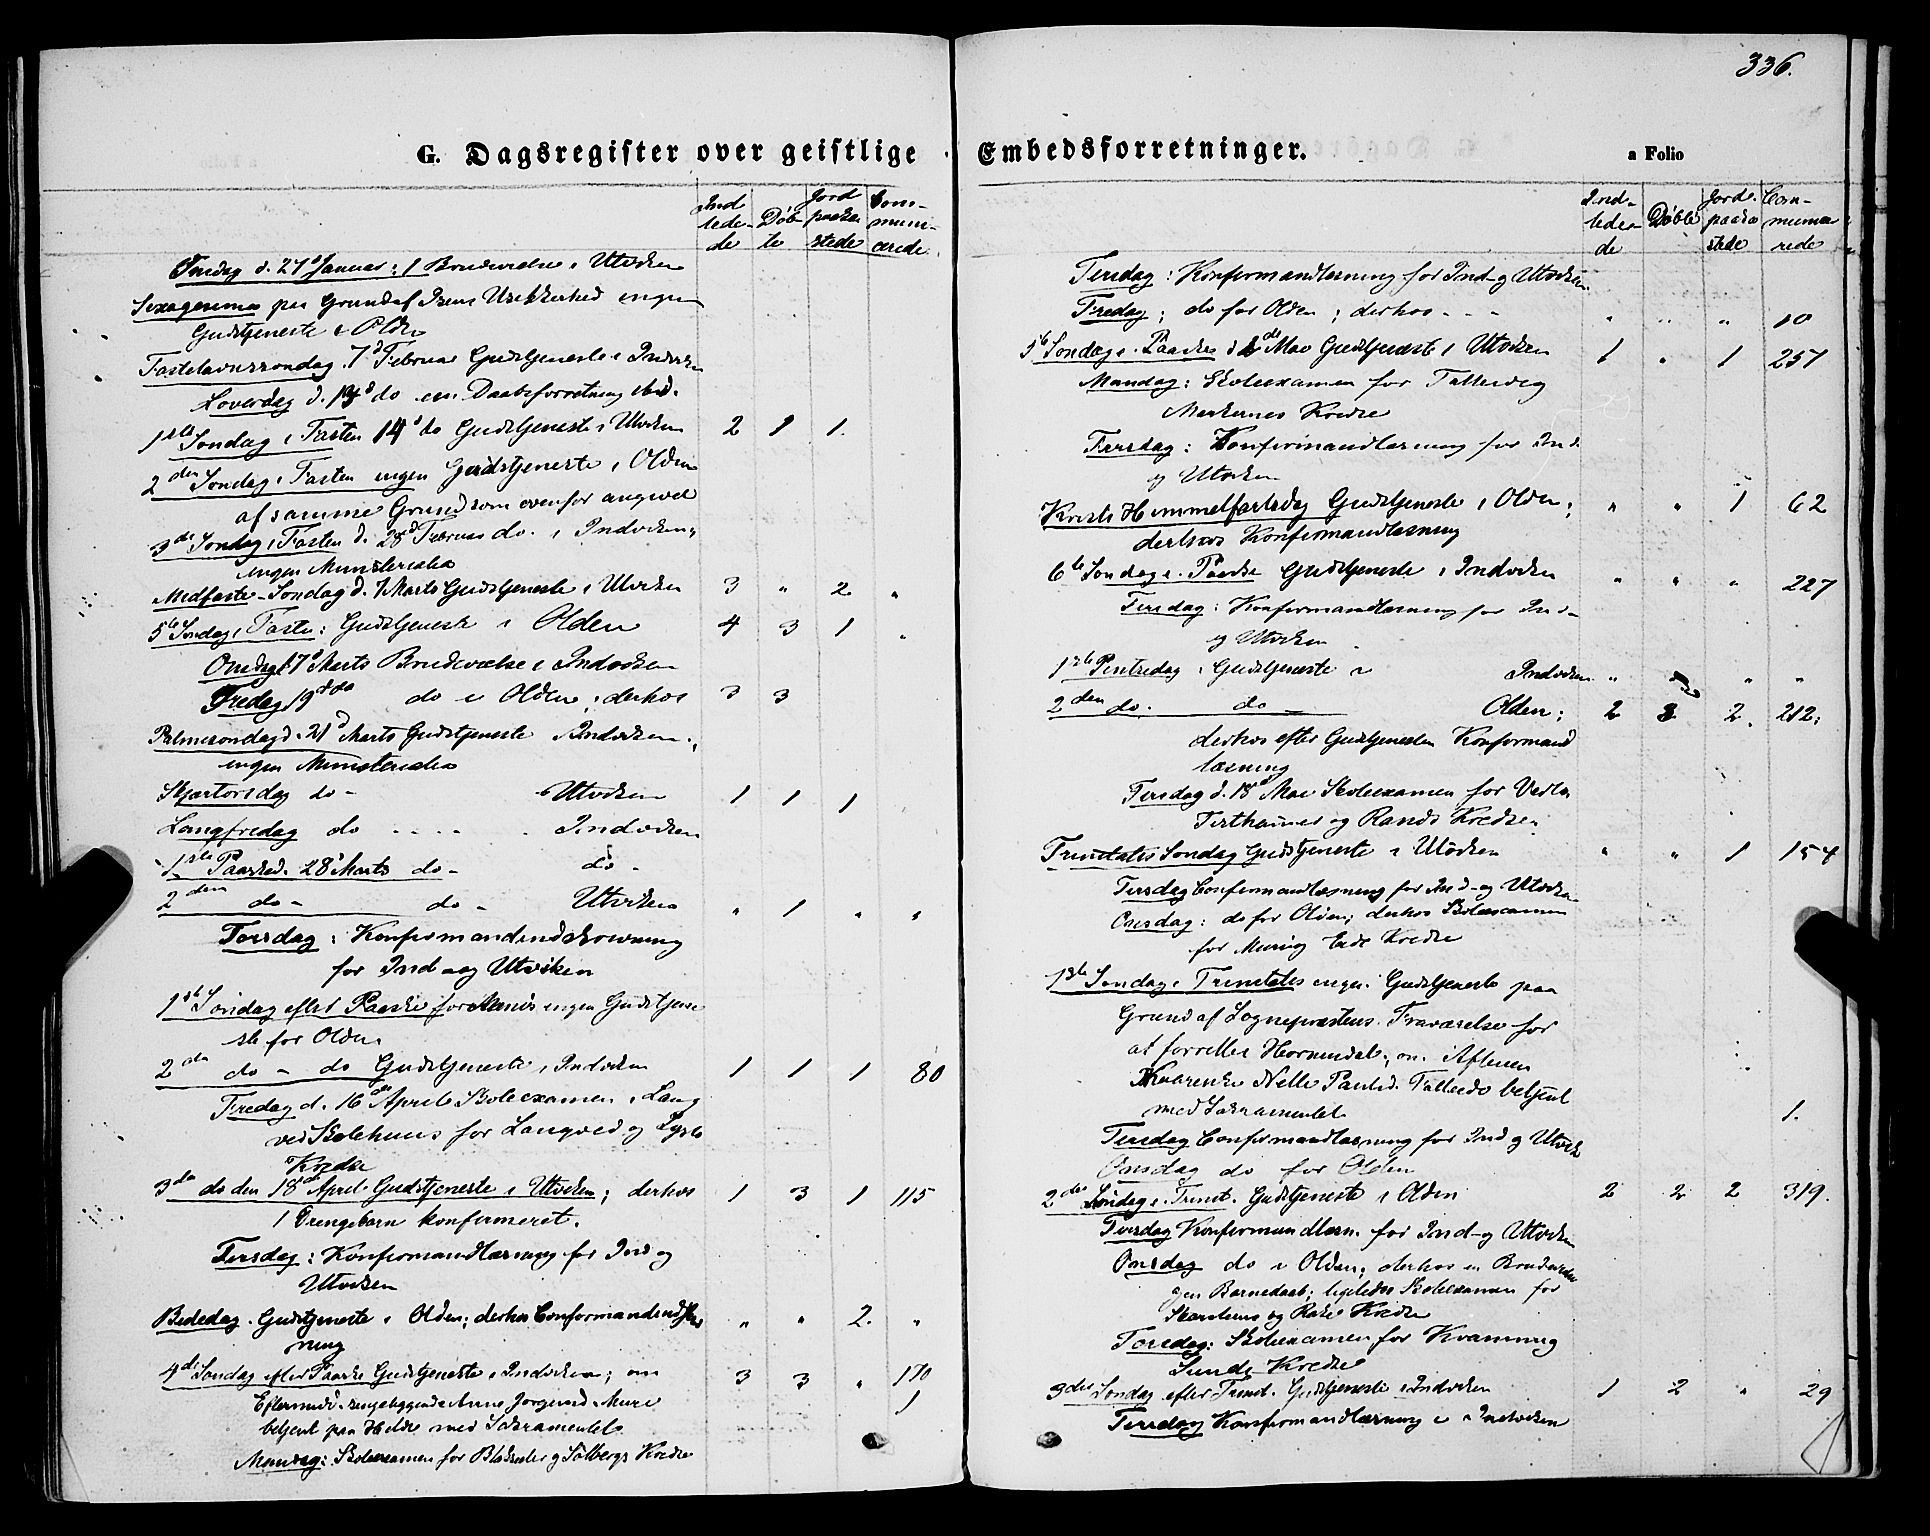 336.
G. Dagsregister over geistlige Embedsforretninger.
a Folio
Ind
lede-
de
Døb
te
Jord
paaka
stede
Com-
muni-
cerede
Onsdag d. 27d Januar: 1 Brudevielse i Utviken
Sexagesima paa Grund af Isens Usikkerhed ingen
Gudstjeneste i Olden
Fastelavnssondag 7d Februar Gudstjeneste i Indviken
Loverdag d. 13d do en Daabsforretning ibid.
1ste Sondag i Fasten 14d do Gudstjeneste i Utviken 2 1 1.
2den Sondag i Fasten ingen Gudstjeneste i Olden
af samme Grund som ovenfor angivet
3die Sondag i Fasten d. 28d Februar do. i Indviken;
ingen Ministerialia
Midfaste-Sondag d. 7 Marts Gudstjeneste i Utviken 3 " 2 "
5te Sondag i Fasten: Gudstjeneste i Olden 4 3 1 "
Onsdag 17d Marts Brudevielse i Indviken
Fredag 19d do do i Olden; derhos 3 3
Palmesondag d. 21d Marts Gudstjeneste Indviken;
ingen Ministerialia
Skjærtorsdag do - Utviken 1 1 1
Langfredag do . . . . Indviken
1ste Paasked. 28d Marts do - do -
2den do - do - Utviken " 1 " "
Torsdag: Konfirmandindskrivning
for Ind og Utviken
1ste Sondag efter Paaske ingen Gudstjene
ste for Olden
2den do - do Gudstjeneste i Indviken 1 1 1 80
Fredag d. 16de April Skoleexamen i Lang
ved Skolehuus for Langved og
Kredse
3die do den 18de April Gudstjeneste i Utviken; derhos 1 3 1 115
1 konfirmeret.
Tirsdag: Konfirmandlæsning for Ind og
Utviken
Bededag. Gudstjeneste i Olden; derhos Conformandindskriv " " 2. "
ning
4de Sondag efter Paaske Gudstjeneste i Indviken; om 3 3 " 170
Eftermidd. sengeliggende Anne Jorgensd. Mure 1
betjent paa Helde med Sakramentet
Mandag: Skoleexamen for og Solbergs Kredse
Ind-
lede-
de
Døbte
Jord.
paaka
stede
Com-
munice
rede
Tirsdag: Konfirmandlæsning for Ind- og Utviken
Fredag: do for Olden; derhos - - - " " " 10
5te Sondag e. Paaske d. 2d Mai Gudstjeneste i Utviken 1 " 1 257
Mandag: Skoleexamen for
Markernes Kredse
Tirsdag: Konfirmandlæsning for Ind
og Utviken
Kristi Himmelfartsdag Gudstjeneste i Olden; " " 1 62
derhos Konfirmandlæsning
6te Sondag e. Paaske Gudstjeneste i Indviken " " " 227
Tirsdag: Konfirmandlæsning for Ind-
og Utviken
1ste Pintsedag: Gudstjeneste i Indviken " " "
2den do. do - Olden; 2 3 2. 212.
derhos efter Gudstjenesten Konfirmand
læsning
Tirsdag d. 18d Mai Skoleexamen for
og Rands Kredse
Trinitatis Sondag Gudstjeneste i Utviken " " 1 154
Tirsdag Confirmandlæsning for Ind- og Utviken
Onsdag: do for Olden; derhos Skoleexamen
for Muri og Eide Kredse
1ste Sondag e. Trinitatis ingen Gudstjeneste paa
Grund af Sognepræstens Fraværelse for
at forrette i Hornindal; om Aftenen
Nelle Paulsd. betjent
med Sakramentet 1.
Tirsdag Confirmandlæsning for Ind og Utvik
Onsdag do for Olden
2den Sondag e. Trinit. Gudstjeneste i Olden 2 2 2 319.
Tirsdag Konfirmandlæsn. for Ind- og Utviken
Onsdag do i Olden; derhos en Brudevielse
og en Barnedaab; ligeledes Skoleexamen for
og Kredse
Torsdag: Skoleexamen for Kvamme og
Sunde Kredse
3die Sondag efter Trinit. Gudstjeneste i Indviken 1 2 " 29
Tirsdag Konfirmandlæsning i Indviken